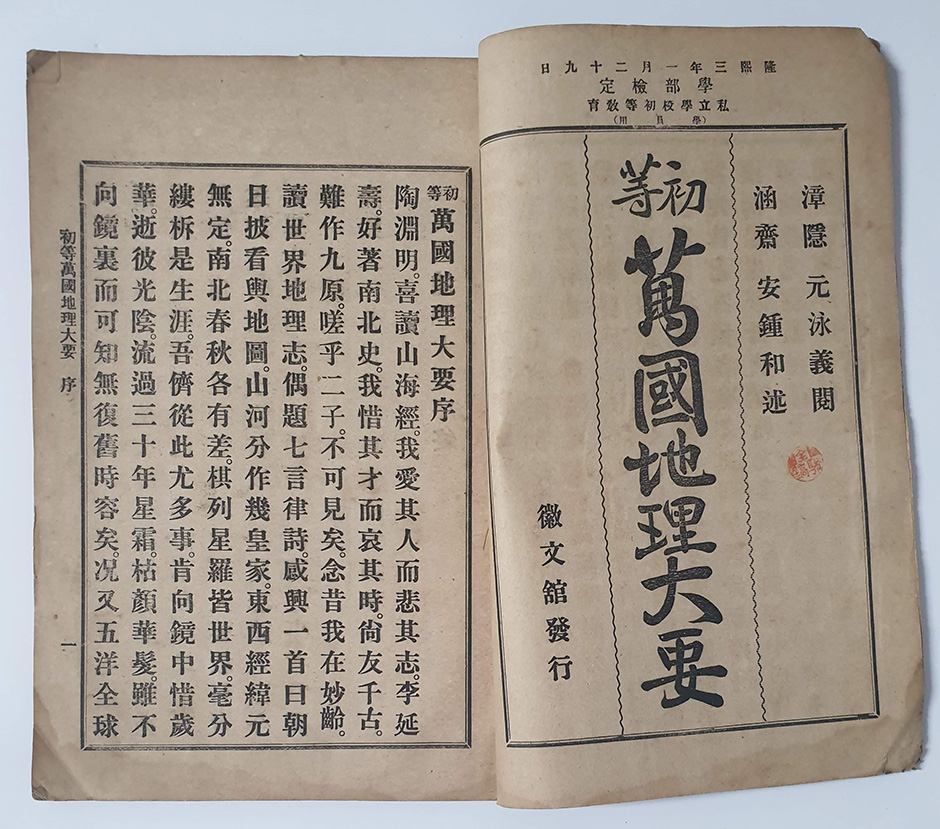 日九十二月一年三熙隆
定檢部學
育敎等初校學立私
(用員學)
漳隱 元泳義閱
涵齋 安鍾和述
初等
萬國地理大要
徽文舘發行
初等萬國地理大要序
陶淵明。喜讀山海經。我愛其人而悲其志。李延
壽。好著南北史。我惜其才而哀其時。尙友千古。
難作九原。嗟乎二子。不可見矣。念昔我在妙齡。
讀世界地理志。偶題七言律詩。感興一首曰朝
日披看輿地圖。山河分作幾皇家。東西經緯元
無定。南北春秋各有差。棋列星羅皆世界。毫分
縷析是生涯。吾儕從此尤多事。肯向鏡中惜歲
華。逝彼光陰。流過三十年星霜。枯顏華髮。雖不
向鏡裏而可知無復舊時容矣。况又五洋全球
初等萬國地理大要 序 一